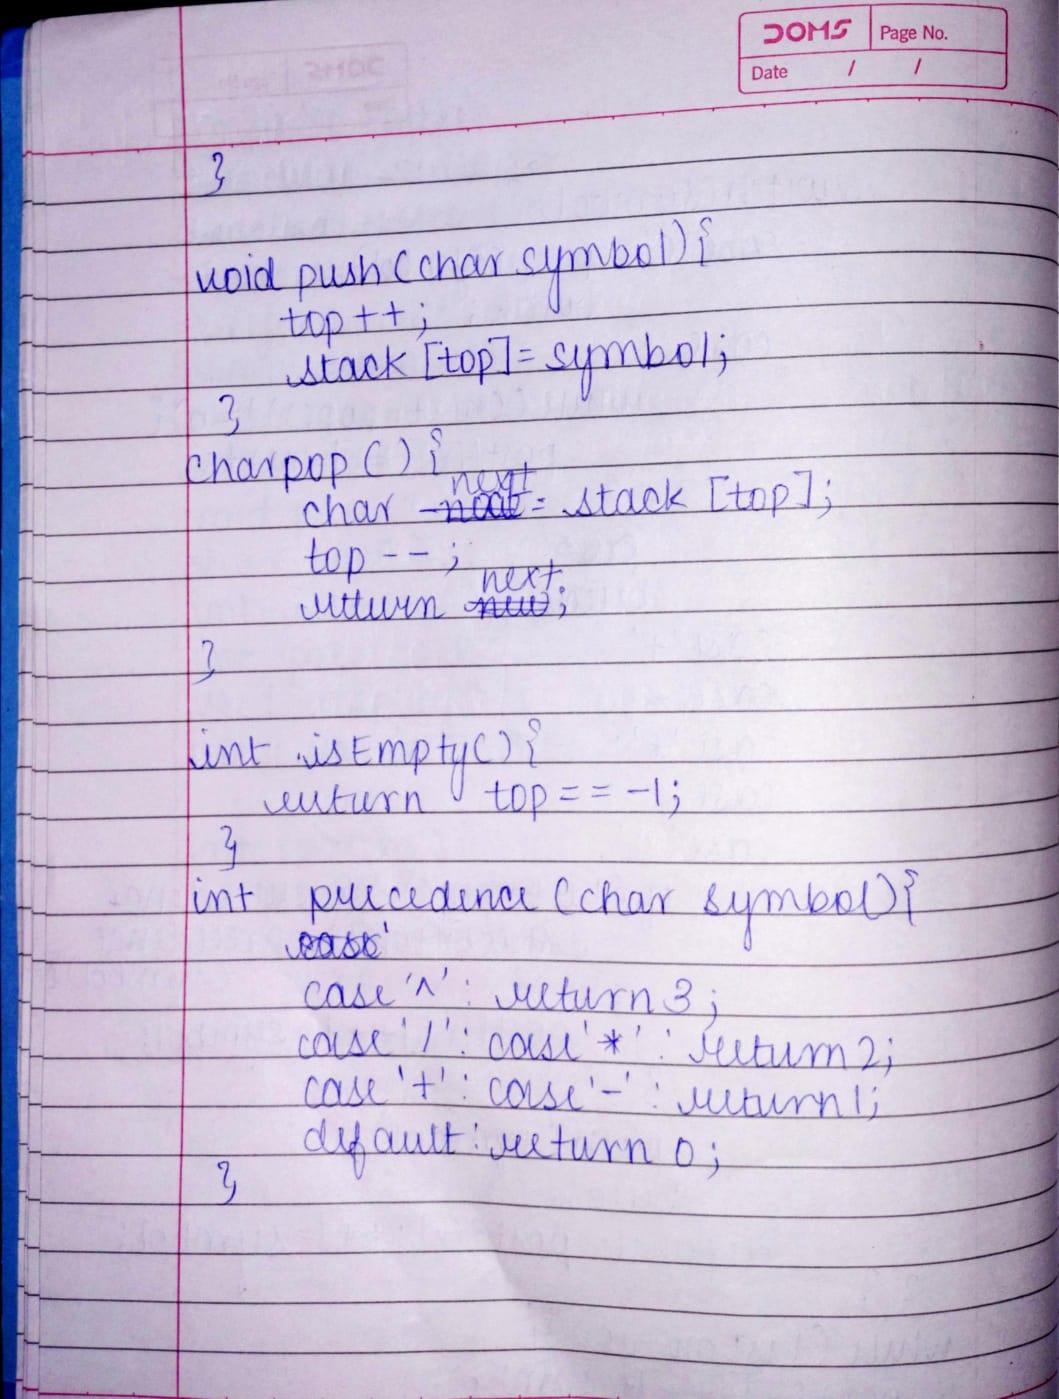 DOMS Page No.
Date / /
}
void push(char symbol){
top++;
stack[top]=symbol;
}
charpop(){
char next = stack[top];
top--;
return next;
}
int isEmpty(){
return top==-1;
}
int precedence(char symbol){
case '^': return 3;
case '/': case '*': return 2;
case '+': case '-': return 1;
default: return 0;
}